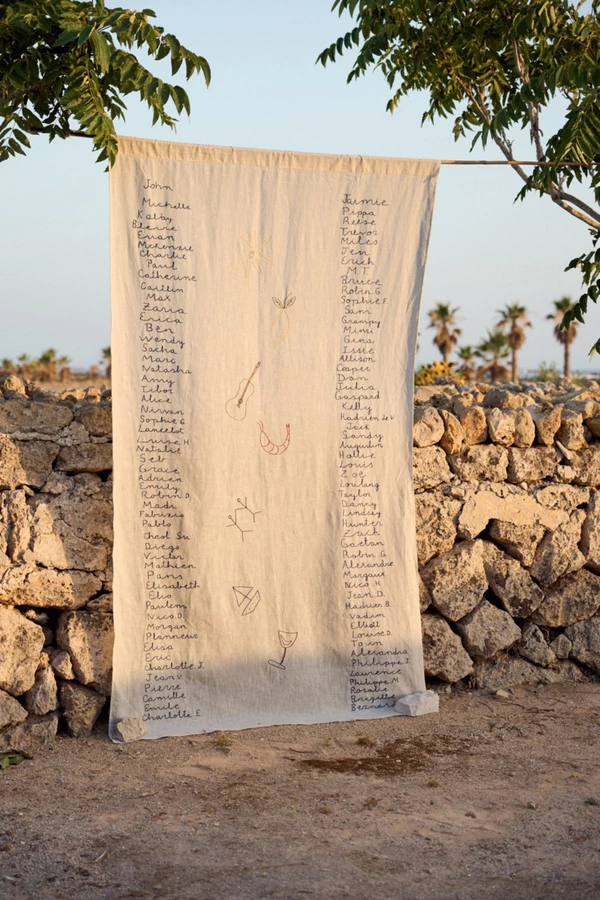 John
Michelle
Kathy
Pierre
Evan
McKenzie
Charlie
Paul
Catherine
Caitlin
Max
Zaria
Erica
Ben
Wendy
Sacha
Marc
Natasha
Amy
Tibot
Alice
Nirvan
Sophie G
Lancelot
Louise H
Natalie
Seb
Grace
Adrien
Emily
Robin D.
Madi
Fabrizio
Pablo
Diego
Victor
Mathieu
Paris
Elisabeth
Elio
Nico D.
Morgan
Elisa
Eric
Charlotte J.
Jean V.
Pierre
Camille
Emile
Charlotte E
Jaimie
Pippa
Reese
Trevor
Miles
Jen
Erich
M.T
Bruce
Robin G.
Sophie F.
Sam
Grampy
Mimi
Gina
Issie
Allison
Casper
Dom
Julia
Gaspard
Kelly
Hadrien de V
Jack
Sandy
Augustin
Hallie
Louis
Zoe
Loulang
Taylor
Danny
Lindsey
Hunter
Zach
Gaetan
Robin G.
Alexandre
Margaux
Nico H
Jean D.
Hadrien B.
Vadim
Elliott
Louise D.
Tom
Alexandra
Philippe J.
Laurence
Philippe M.
Rosalie
Brigitte
Bernard